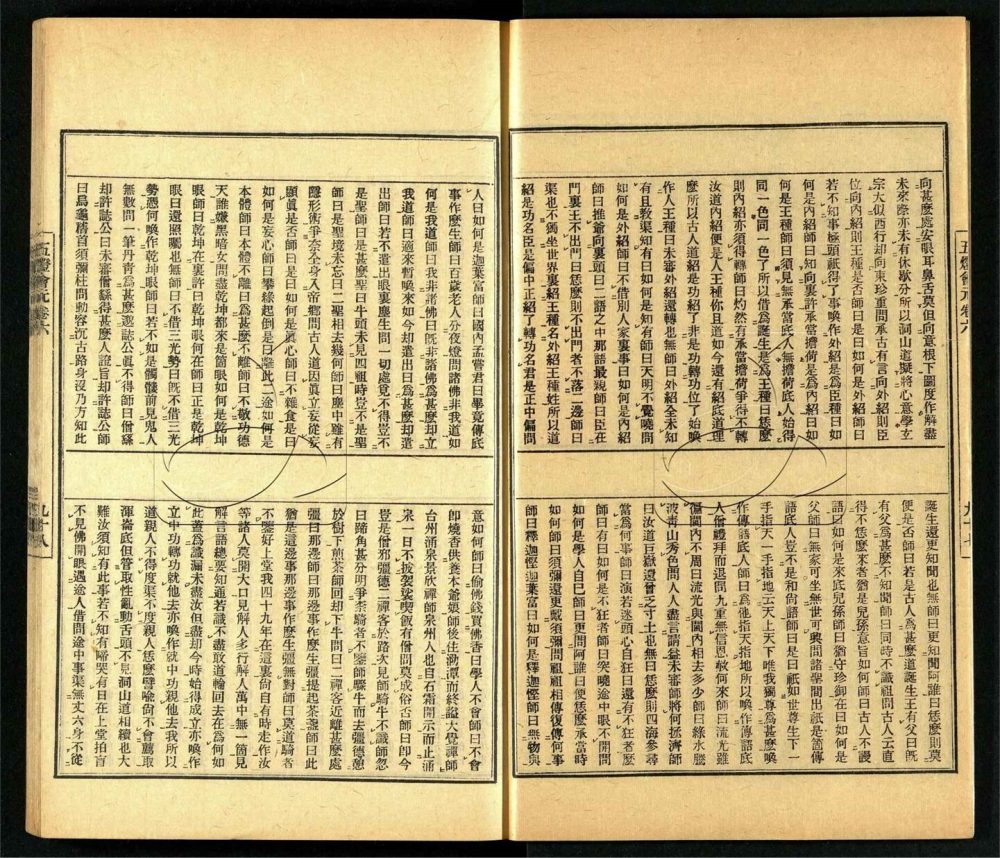 五燈會元卷六
向甚麽處安眼耳鼻舌莫但向意根下圖度作解盡
未來際亦未有休歇分所以洞山道擬將心意學玄
宗大似西行却向東珍重問承古有言向外紹則臣
位向内紹則王種是否師曰是曰如何是外紹師曰
若不知事極頭祇得了事喚作外紹是爲臣種曰如
何是内紹師曰知向裏許承當擔荷是爲内紹曰如
何是王種師曰須見無承當底人無擔荷底人始得
同一色同一色了所以借爲誕生是爲王種曰恁麽
則内紹亦須得轉師曰灼然有承當擔荷爭得不轉
汝道内紹便是人王種你且道如今還有紹底道理
麽所以古人道紹是功紹了非是功轉功位了始喚
作人王種曰未審外紹還轉也無師曰外紹全未知
有且教渠知有曰如何是知有師曰天明不覺曉問
如何是外紹師曰不借別人家裏事曰如何是内紹
師曰推爺向裏頭曰二語之中那語最親師曰臣在
門裏王不出門曰恁麽則不出門者不落二邊師曰
渠也不獨坐世界裏紹王種名外紹王種姓所以道
紹是功名臣是偏中正紹了轉功名君是正中偏問
誕生還更知聞也無師曰更知聞阿誰曰恁麽則莫
便是否師曰若是古人爲甚麽道誕生王有父曰既
有父爲甚麽不知聞師曰同時不識祖問古人云直
得不恁麽來者猶是兒孫意旨如何師曰古人不謾
語曰如何是來底兒孫師曰猶守珍御在曰如何是
父師曰無家可坐無世可興問諸聖間出祇是箇傳
語底人豈不是和尚語師曰是曰祇如世尊生下一
手指天一手指地云天上天下唯我獨尊爲甚麽喚
作傳語底人師曰爲他指天指地所以喚作傳語底
人僧禮拜而退問九重無信恩赦何來師曰流光雖
徧閫内不周曰流光與閫内相去多少師曰綠水騰
波青山秀色問人人盡言請益未審師將何拯濟師
曰汝道巨嶽還曾乏寸土也無曰恁麽則四海參尋
當爲何事師曰演若迷頭心自狂曰還有不狂者麽
師曰有曰如何是不狂者師曰突曉途中眼不開問
如何是學人自己師曰更問阿誰曰便恁麽承當時
如何師曰須彌還更戴須彌麽問祖祖相傳復傳何
事師曰釋迦慳迦葉富曰如何是釋迦慳師曰無物與
九十七
人曰如何是迦葉富師曰國内孟嘗君曰畢竟傳底
事作麽生師曰百歲老人分夜燈問諸佛非我道如
何是我道師曰我非諸佛曰既非諸佛爲甚麽却立
我道師曰適來暫喚來如今却遣出曰爲甚麽却遣
出師曰若不遣出眼裏塵生問一切處覓不得豈不
是聖師曰是甚麽聖曰牛頭未見四祖時豈不是聖
師曰是聖境未忘曰二聖相去幾何師曰塵中雖有
隱形術爭奈全身入帝鄉問古人道因眞立妄從妄
顯眞是否師曰是曰如何是眞心師曰不雜食是曰
如何是妄心師曰攀緣起倒是曰離此二途如何是
本體師曰本體不離曰爲甚麽不離師曰不敬功德
天誰嫌黑暗女問盡乾坤都來是箇眼如何是乾坤
眼師曰乾坤在裏許曰乾坤眼何在師曰正是乾坤
眼曰還照矚也無師曰不借三光勢曰既不借三光
勢憑何喚作乾坤眼師曰若不如是髑髏前見鬼人
無數問一筆丹青爲甚麽邈誌公眞不得師曰僧繇
却許誌公曰未審僧繇得甚麽人證旨却許誌公師
曰烏龜稽首須彌柱問動容沉古路身沒乃方知此
意如何師曰偷佛錢買佛香曰學人不會師曰不會
即燒香供養本爺孃師後住泐潭而終諡大覺禪師
台州涌泉景欣禪師泉州人也自石霜開示而止涌
泉一日不披袈裟喫飯有僧問莫成俗否師曰即今
豈是僧邪彊德二禪客於路次見師騎牛不識師忽
曰蹄角甚分明爭柰騎者不鑒師驟牛而去彊德憩
於樹下煎茶師回却下牛問曰二禪客近離甚麽處
彊曰那邊師曰那邊事作麽生彊提起茶盞師曰此
猶是這邊事那邊事作麽生彊無對師曰莫道騎者
不鑒好上堂我四十九年在這裏尚自有時走作汝
等諸人莫開大口見解人多行解人萬中無一箇見
解言語總要知通若識不盡敢道輪回去在爲何如
此蓋爲識漏未盡汝但盡却今時始得成立亦喚作
立中功轉功就他去亦喚作就中功親他去我所以
道親人不得度渠不度親人恁麽譬喻尚不會薦取
渾崙底但管取性亂動舌頭不見洞山道相續也大
難汝須知有此事若不知有啼哭有日在上堂拍盲
不見佛開眼遇途人借問途中事渠無丈六身不從
五燈會元卷六
九十八